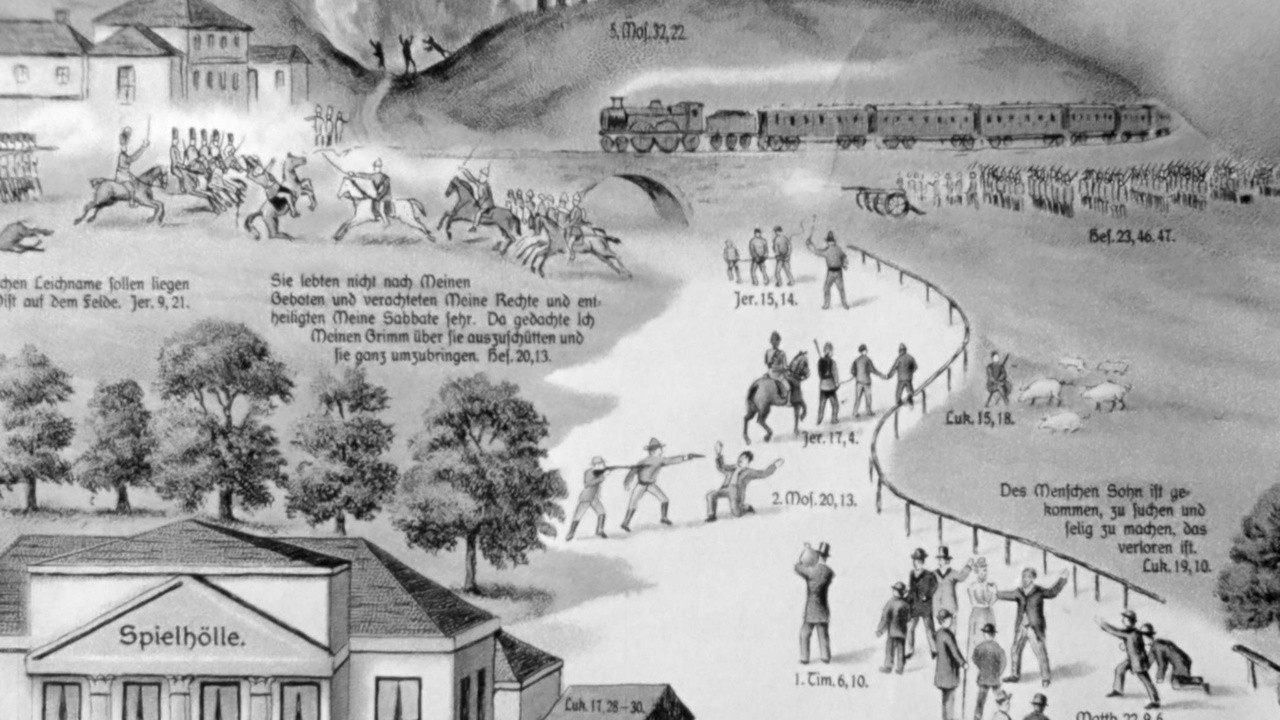 5. Mos. 32, 22.
Hes. 23, 46. 47.
Jer. 15, 14.
chen Leichname sollen liegen
Mist auf dem Felde. Jer. 9, 21.
Sie lebten nicht nach Meinen
Geboten und verachteten Meine Rechte und ent-
heiligten Meine Sabbate sehr. Da gedachte Ich
Meinen Grimm über sie auszuschütten und
sie ganz umzubringen. Hes. 20, 13.
Luk. 15, 18.
Jer. 17, 4.
2. Mos. 20, 13.
Des Menschen Sohn ist ge-
kommen, zu suchen und
selig zu machen, das
verloren ist.
Luk. 19, 10.
Spielhölle.
1. Tim. 6, 10.
Luk. 17, 28–30.
Matth. 22,